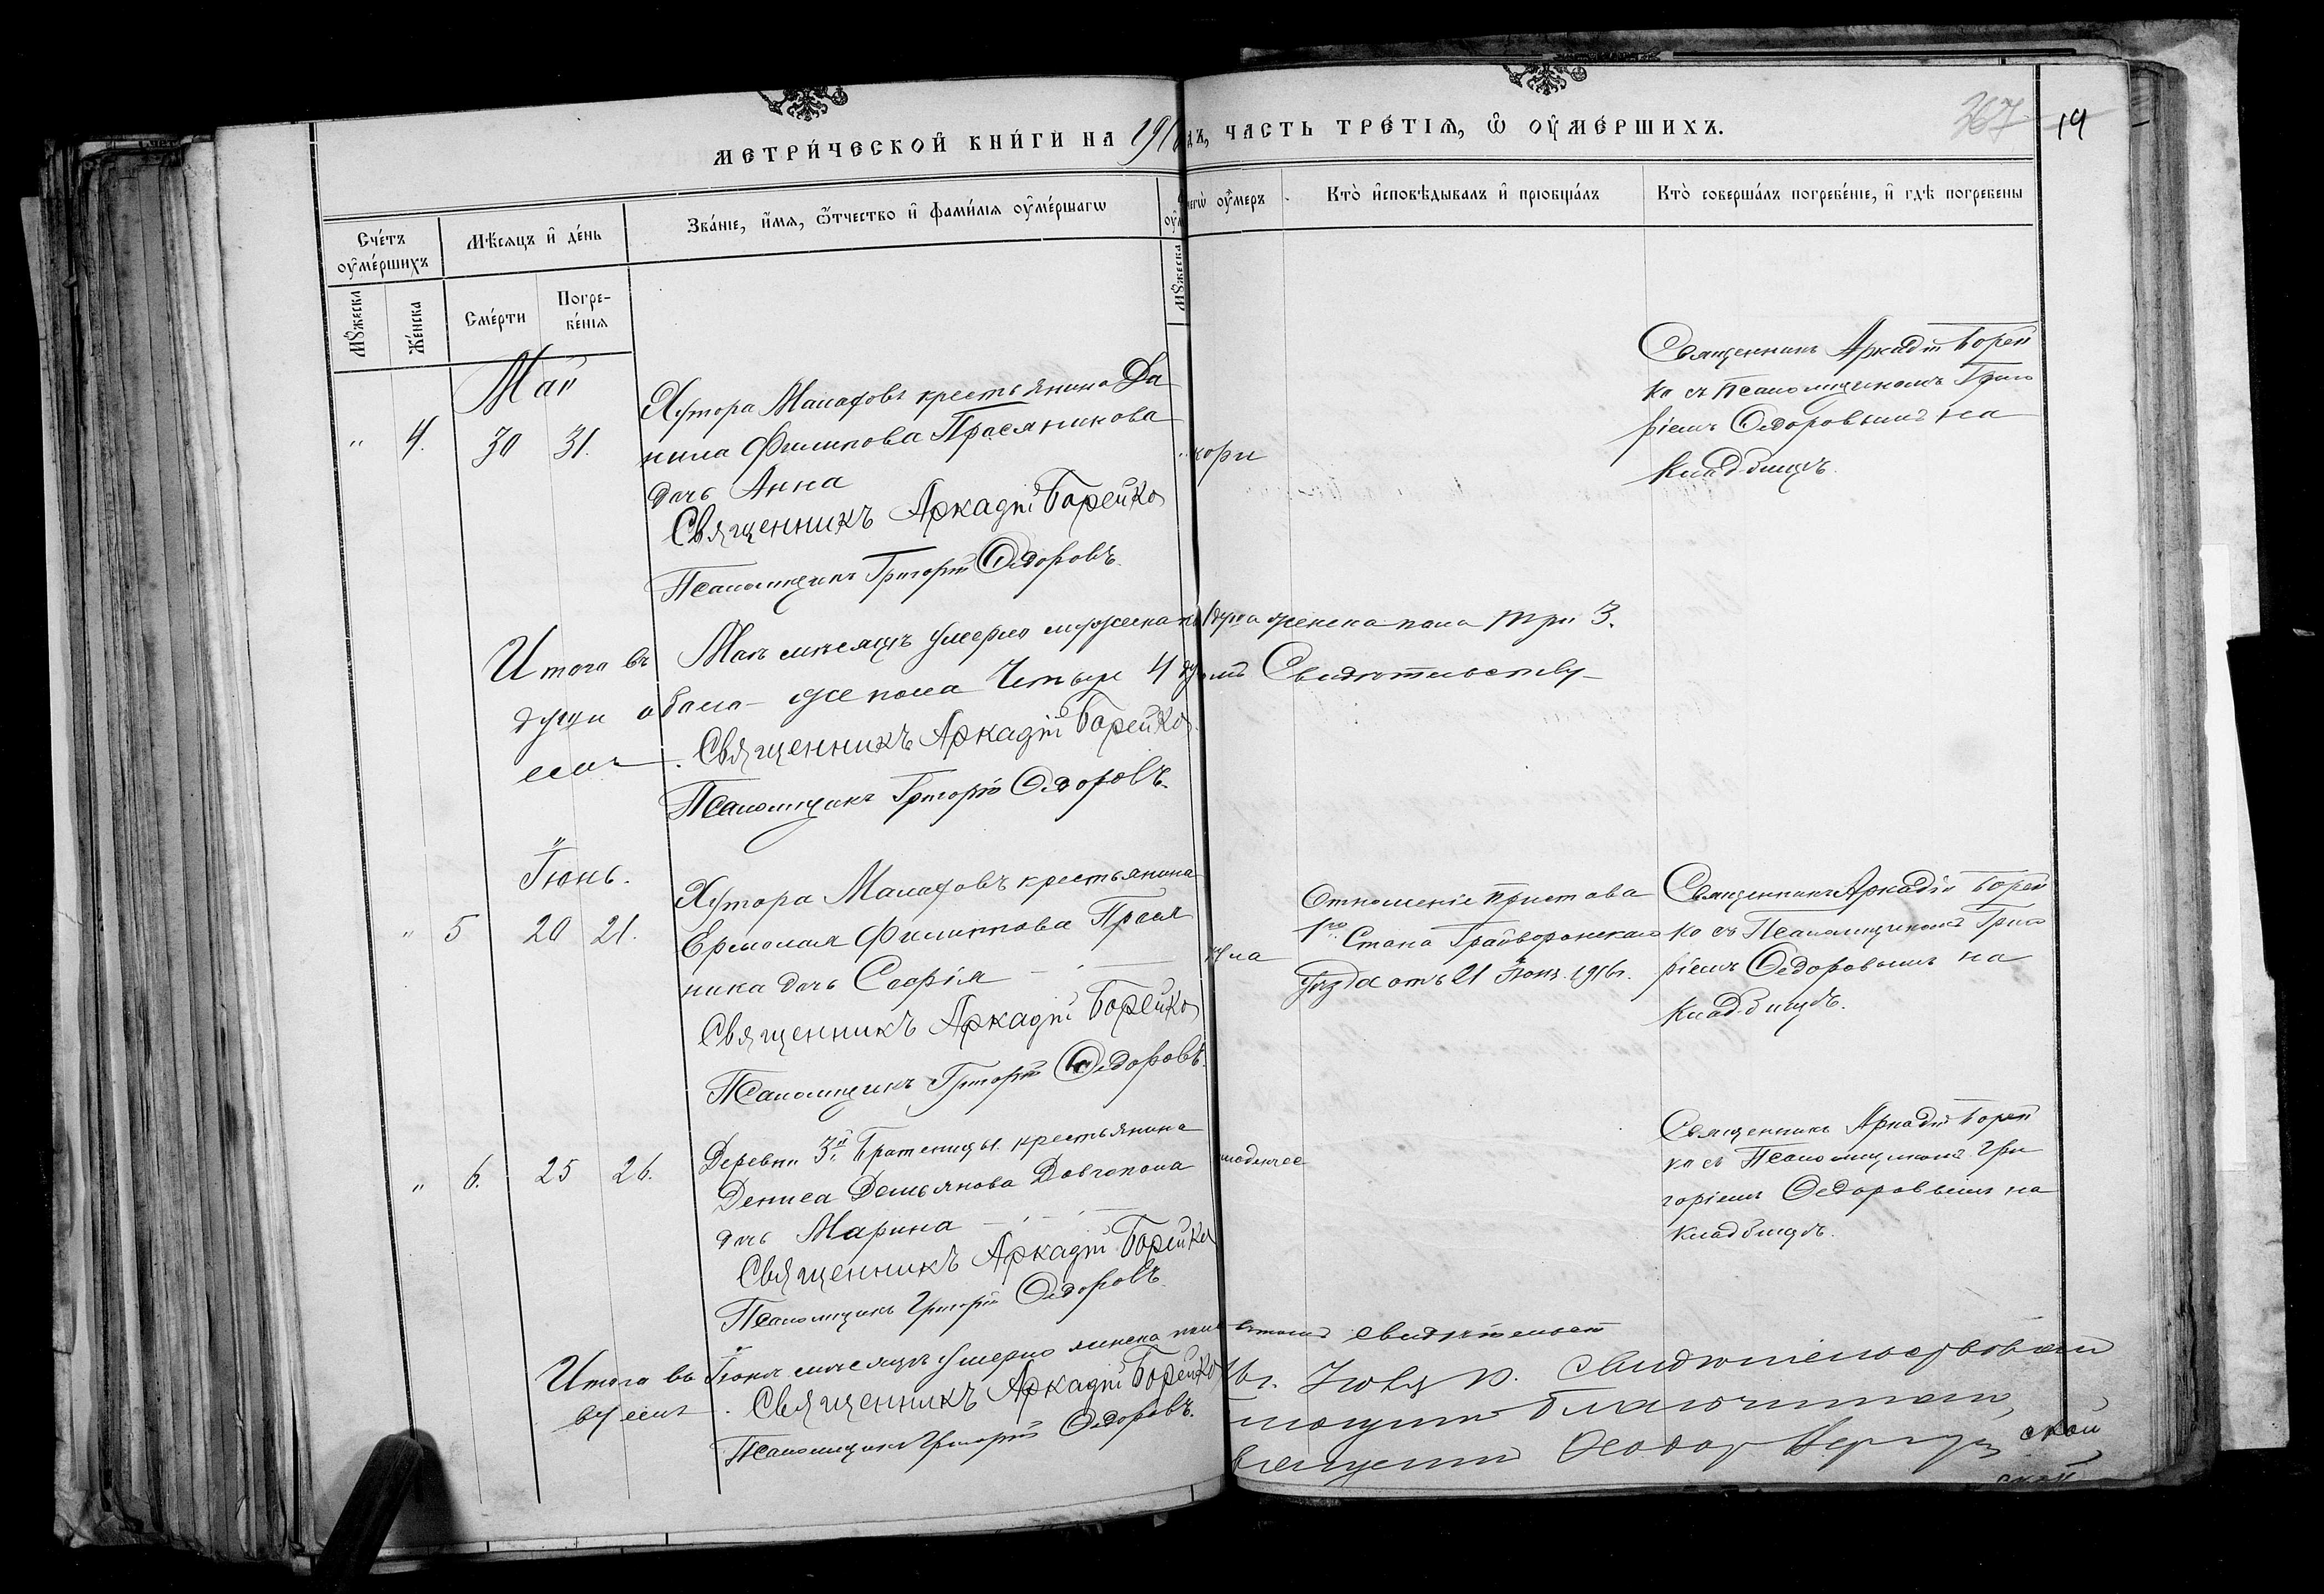 МЕТРИ́ЧЕСКОЙ КНИ́ГИ НА 191
ДЪ, ЧАСТЬ ТРЕ́ТІѦ, Ѽ ОУ҆МЕ́РШИХЪ.
367
19
Сче́тъ
оу҆ме́ршихъ
Мѣ́сяцъ и҆ де́нь
Зва́ніе, и҆́мя, ѻ҆́тчество и҆ фами́лія оу҆ме́ршагѡ
Мꙋ́жеска
Же́нска
Сме́рти
Погре-
бе́нія
Мꙋ́жеска
чегѡ̀ оу҆́меръ
Кто̀ и҆сповѣ́дывалъ и҆ пріобща́лъ
Кто̀ соверша́лъ погребе́ніе, и҆ гдѣ̀ погребены
Май
" 4. 30 31.
Хутора Малафовъ крестьянина Да
нила Филипова Прасяникова
дочь Анна
Священникъ Аркадій Борейко
Псаломщикъ Григорій Ѳедоровъ.
кори
Священникъ Аркадій Борей
ко съ Псаломщикомъ Григо
ріемъ Ѳедоровымъ на
кладбищѣ.
Итого въ Маѣ мѣсяцѣ умерло мужеска по 1 душа женска пола три 3.
души обоего же пола четыре 4 Свидѣтельству
емъ. Священникъ Аркадій Борейко
Псаломщикъ Григорій Ѳедоровъ.
Іюнь.
" 5 20 21.
Хутора Малафовъ крестьянина
Ермолая Филиппова Прася
ника дочь Софія
Священникъ Аркадій Борейко
Псаломщикъ Григорій Ѳедоровъ.
Отношеніе Пристава
1го Стана Грайворонскаго
Уѣзда отъ 21 Іюня 1916г.
Священникъ Аркадій Борей
ко съ Псаломщикомъ Григо
ріемъ Ѳедоровымъ на
кладбищѣ.
" 6. 25 26.
Деревни 3й Братеницы крестьянина
Дениса Демьянова Довгопола
дочь Марина
Священникъ Аркадій Борейко
Псаломщикъ Григорій Ѳедоровъ.
Священникъ Аркадій Борей
ко съ Псаломщикомъ Гри
горіемъ Ѳедоровымъ на
кладбищѣ.
Итого въ Іюнѣ мѣсяцѣ умерло женска пола свидѣтельст
вуемъ. Священникъ Аркадій Борейко
Псаломщикъ Григорій Ѳедоровъ.
свидѣтельствовалъ
Ѳеодоръ
ской